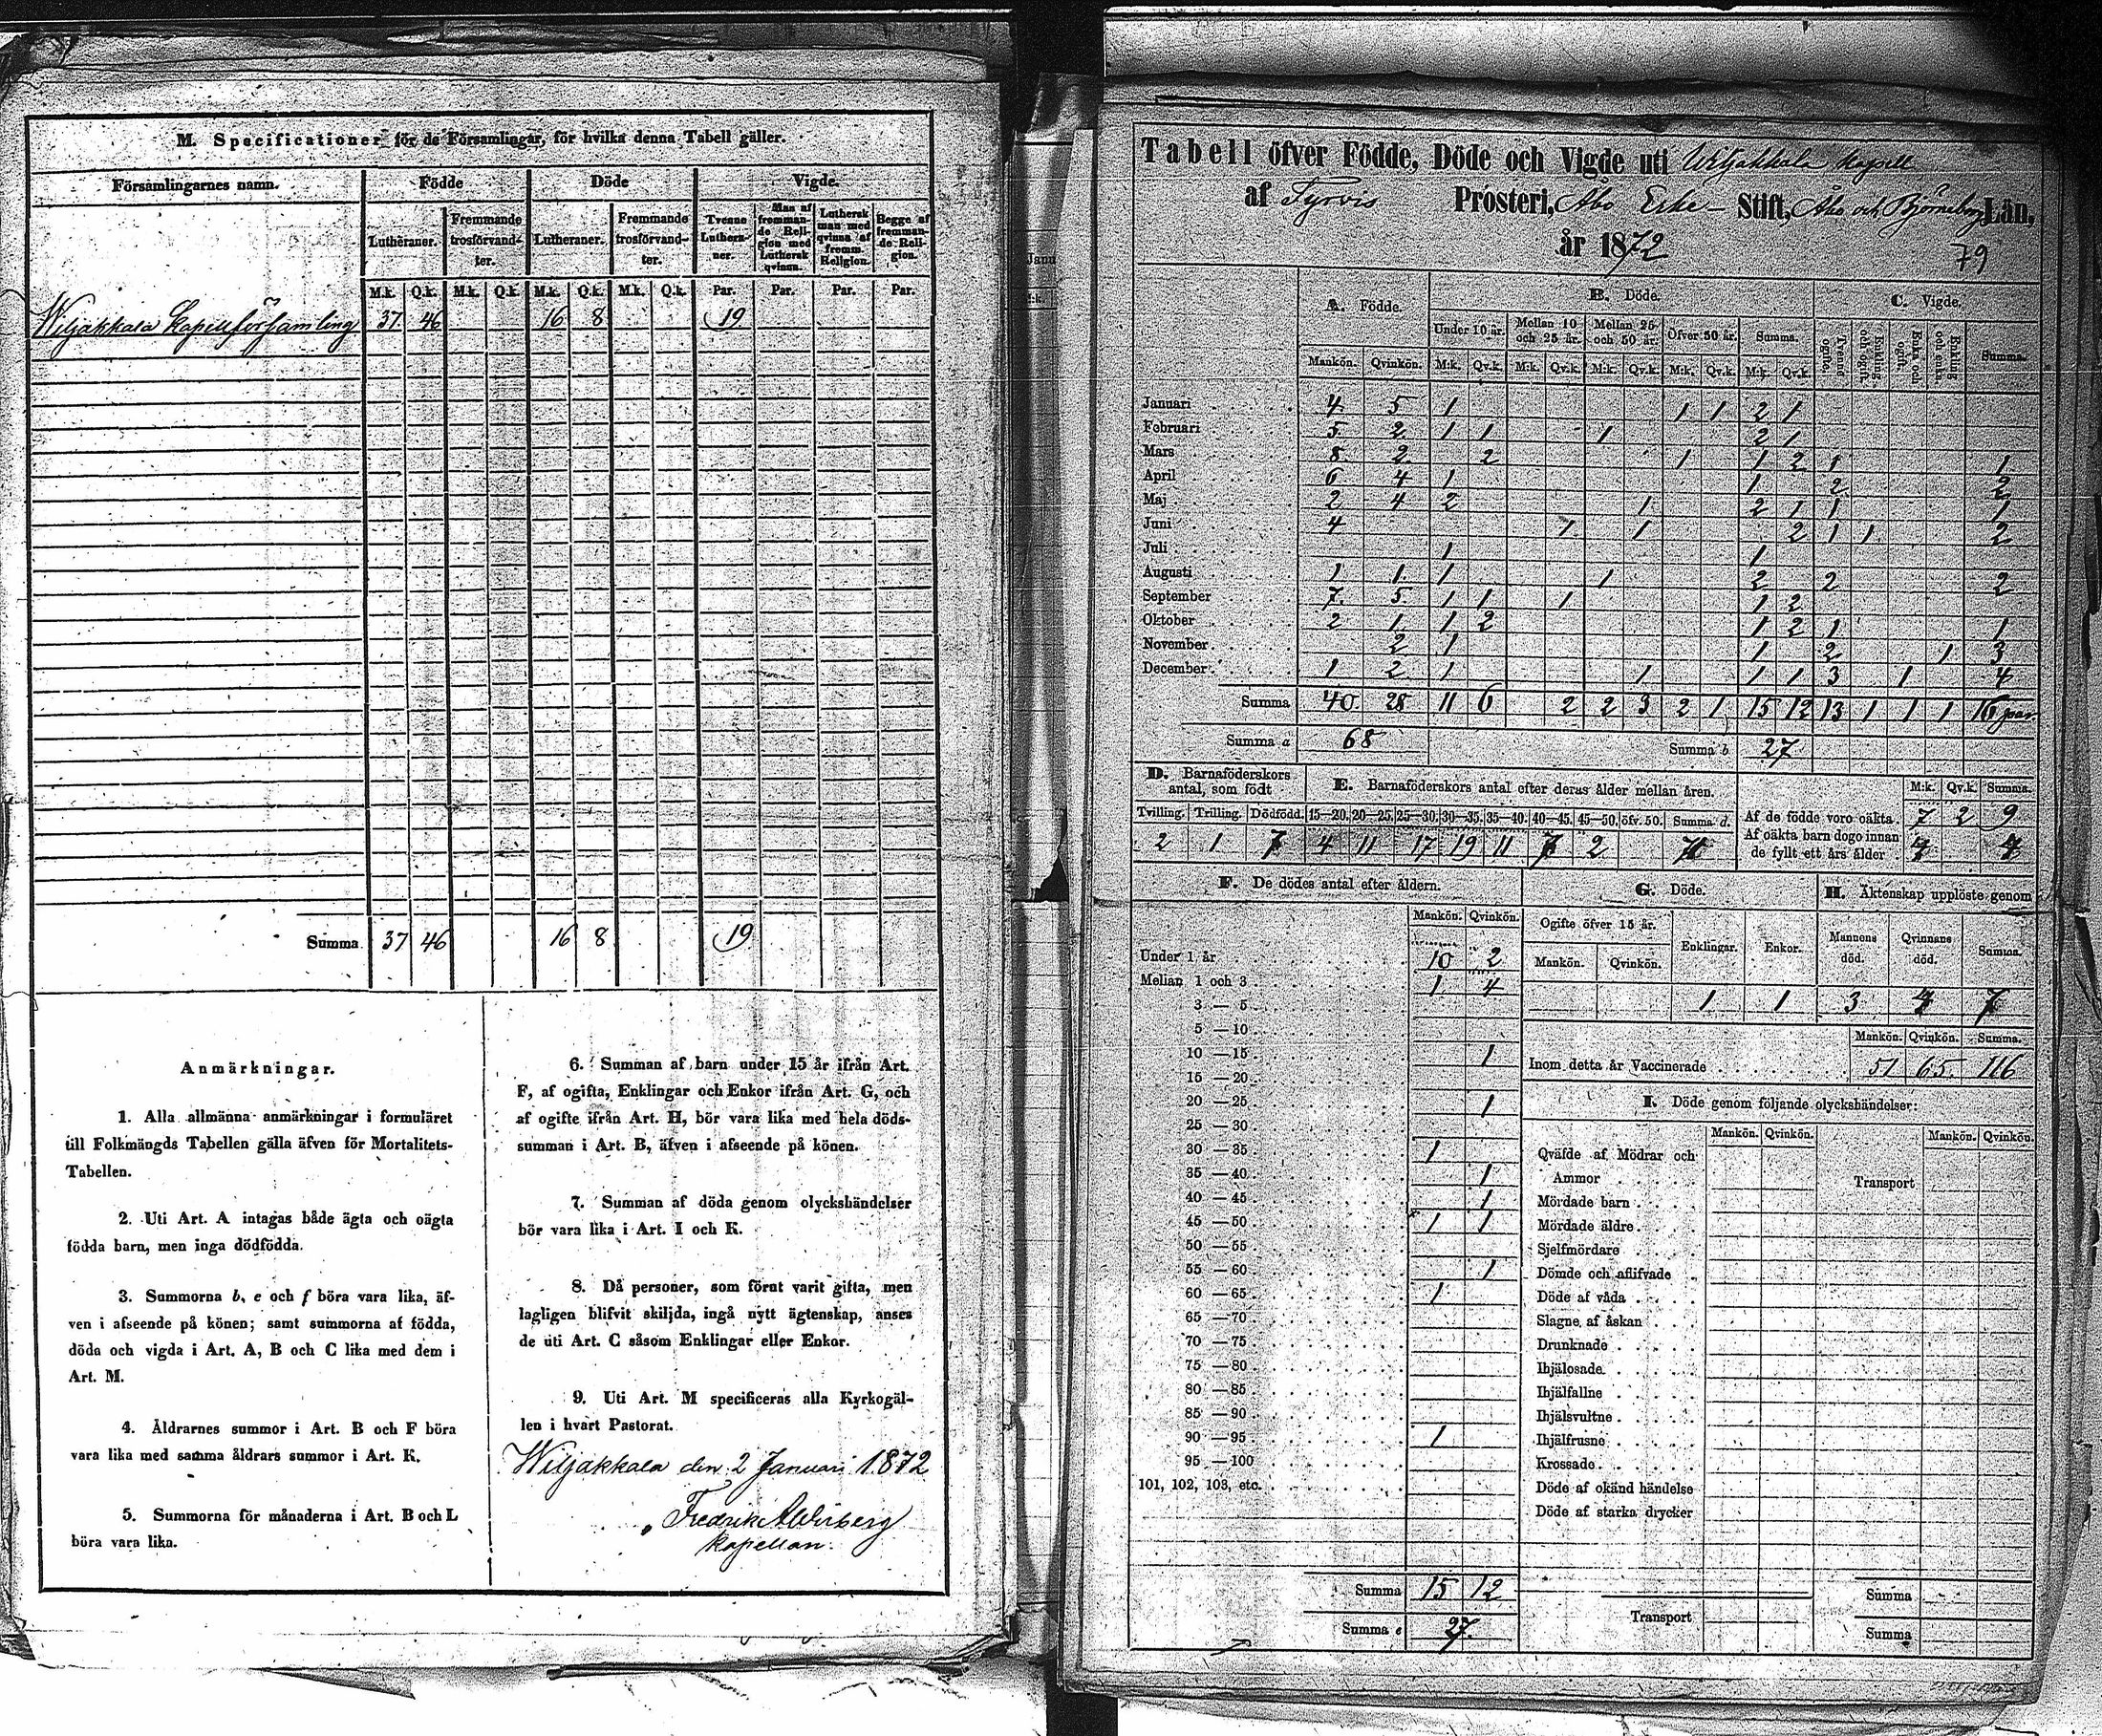 M. Specificationer för de Församlingar, för hvilka denna Tabell gäller.
Församlingarnes namn. Födde Döde Vigde.
Lutheraner. Fremmande trosförvandter. Lutheraner. Fremmande trosförvandter. Tvenne Lutheraner. Man af fremmande Religion med Luthersk qvinna. Luthersk man med qvinna af fremm. Religion. Begge af fremmande Religion.
M.k. Q.k. M.k. Q.k. M.k. Q.k. M.k. Q.k. Par. Par. Par. Par.
Wiljakkala Kapellförsamling 37 46 16 8 19
Summa. 37 46 16 8 19
Anmärkningar.
1. Alla allmänna anmärkningar i formuläret
till Folkmängds Tabellen gälla äfven för Mortalitets-
Tabellen.
2. Uti Art. A intagas både ägta och oägta
födda barn, men inga dödfödda.
3. Summorna b, e och f böra vara lika, äf-
ven i afseende på könen; samt summorna af födda,
döda och vigda i Art. A, B och C lika med dem i
Art. M.
4. Åldrarnes summor i Art. B och F böra
vara lika med samma åldrars summor i Art. K.
5. Summorna för månaderna i Art. B och L
böra vara lika.
6. Summan af barn under 15 år ifrån Art.
F, af ogifta, Enklingar och Enkor ifrån Art. G, och
af ogifte ifrån Art. H, bör vara lika med hela döds-
summan i Art. B, äfven i afseende på könen.
7. Summan af döda genom olyckshändelser
bör vara lika i Art. I och K.
8. Då personer, som förut varit gifta, men
lagligen blifvit skiljda, ingå nytt ägtenskap, anses
de uti Art. C såsom Enklingar eller Enkor.
9. Uti Art. M specificeras alla Kyrkogäl-
len i hvart Pastorat.
Wiljakkala den 2 Januari 1872
Fredrik
Kapellan.
Tabell öfver Födde, Döde och Vigde uti Wiljakkala Kapell
af Tyrvis Prosteri, Åbo Erke- Stift, Åbo och Björneborg Län,
år 1872
79
A. Födde. B. Döde. C. Vigde.
Under 10 år. Mellan 10 och 25 år. Mellan 25 och 50 år. Öfver 50 år. Summa. Tvenne ogifte. Enkling och ogift. Enka och ogift. Enkling och enka. Summa.
Mankön. Qvinkön. M:k. Qv.k. M:k. Qv.k. M:k. Qv.k. M:k. Qv.k. M:k. Qv.k.
Januari 4 5 1 1 1 2 1
Februari 5 2 1 1 1 2 1
Mars 8 2 2 1 1 2 1 1
April 6 4 1 1 2 2
Maj 2 4 2 1 2 1 1 1
Juni 4 1 1 2 1 1 2
Juli 1 1
Augusti 1 1 1 1 2 2 2
September 7 5 1 1 1 1 2
Oktober 2 1 1 2 1 2 1 1
November 2 1 1 2 1 3
December 1 2 1 1 1 1 3 1 4
Summa 40 28 11 6 2 2 3 2 1 15 12 13 1 1 1 16 par
Summa a 68 Summa b 27
D. Barnaföderskors antal, som födt
E. Barnaföderskors antal efter deras ålder mellan åren.
M:k. Qv.k. Summa.
Tvilling. Trilling. Dödfödd. 15—20. 20—25. 25—30. 30—35. 35—40. 40—45. 45—50. öfv. 50. Summa d.
2 1 7 4 11 17 19 11 7 2 71
Af de födde voro oäkta. 7 2 9
Af oäkta barn dogo innan
de fyllt ett års ålder 4 4
F. De dödes antal efter åldern.
Mankön. Qvinkön.
Under 1 år 10 2
Mellan 1 och 3 1 4
3 — 5
5 — 10
10 — 15 1
15 — 20
20 — 25 1
25 — 30
30 — 35 1
35 — 40 1
40 — 45 1
45 — 50 1 1
50 — 55
55 — 60 1
60 — 65 1
65 — 70
70 — 75
75 — 80
80 — 85
85 — 90
90 — 95 1
95 — 100
101, 102, 103, etc.
Summa 15 12
Summa e 27
G. Döde.
Ogifte öfver 15 år. Enklingar. Enkor.
Mankön. Qvinkön.
1 1
H. Äktenskap upplöste genom
Mannens död. Qvinnans död. Summa.
3 4 7
Mankön. Qvinkön. Summa.
Inom detta år Vaccinerade 51 65 116
I. Döde genom följande olyckshändelser:
Mankön. Qvinkön. Mankön. Qvinkön.
Qväfde af Mödrar och
Ammor
Transport
Mördade barn
Mördade äldre
Sjelfmördare
Dömde och aflifvade
Döde af våda
Slagne af åskan
Drunknade
Ihjälosade
Ihjälfallne
Ihjälsvultne
Ihjälfrusne
Krossade
Döde af okänd händelse
Döde af starka drycker
Summa
Transport
Summa